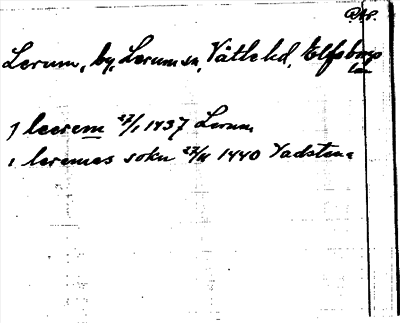 Lerum, by, Lerum sn, Vätle hd, Elfsborgs
län
J leerem 27/1 1437 Lerum
i leremes sokn 27/11 1440 Vadstena